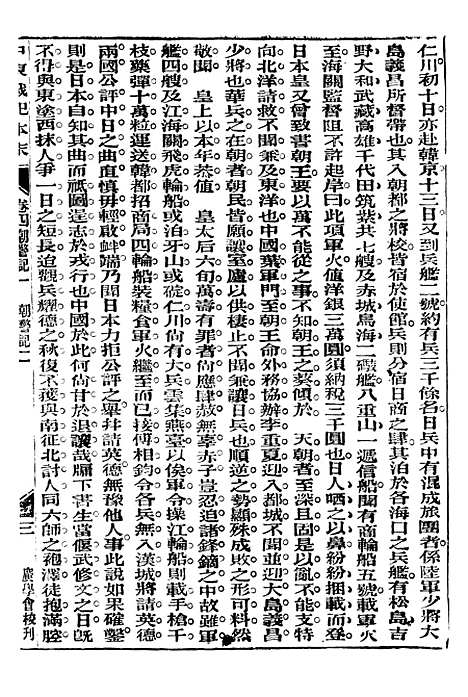 仁川初十日亦赴韓京十三日又到兵艦二號約有兵三千條各日兵中有混成旅團者係陸軍少將大
島義昌所督帶也其入朝都之將校皆宿於使館兵則分宿日商之肆其泊於各海口之兵艦有松島吉
野大和武藏高雄千代田筑紫共七艘及赤城鳥海二礮艦八重山一遞信船聞有商輪船五號載軍火
至海關監督阻不許起岸曰此項軍火值洋銀三萬圓須納稅三千圓也日人晒之以鼻紛紛捆載而登
日本皇又曾致書朝王要以萬不能從之事不知朝王之葵傾於 天朝者至深且固是以亂不能支特
向北洋請救不聞兼及東洋也中國葉軍門至朝王命外務協辦李重夏迎入都城不聞並迎大島義昌
少將也華兵之在朝者朝民皆願讓室廬以供棲止不聞兼讓日兵也順逆之勢顯殊成敗之形可料然
敬聞 皇上以本年恭値 皇太后六旬萬壽有罪者尚應肆赦無辜赤子豈忍迫諸鋒鏑之中故雖軍
艦四艘及江海關飛虎輪船或泊牙山或碇仁川尚有大兵雲集燕臺以俟軍令操江輪船則載手槍千
枝藥彈十萬粒運送韓都招商局四輪船裝糧食軍火繼至而已接傅相鈞令各兵無入漢城將請英德
兩國公評中日之曲直慎毋輕啟衅端乃聞日本力拒公評之舉幷請英德無豫他人事此說如果確鑿
則是日本自知其曲而祇圖逞志於戎行也中國於此何尚甘於退讓哉牖下書生當偃武修文之日既
不得與東塗西抹人爭一日之短長迫觀兵耀德之秋復不獲與南征北討人同六師之袍澤徒抱滿腔
中東戰紀本末 卷四朝警記一 朝警記二 三 廣學會校刊